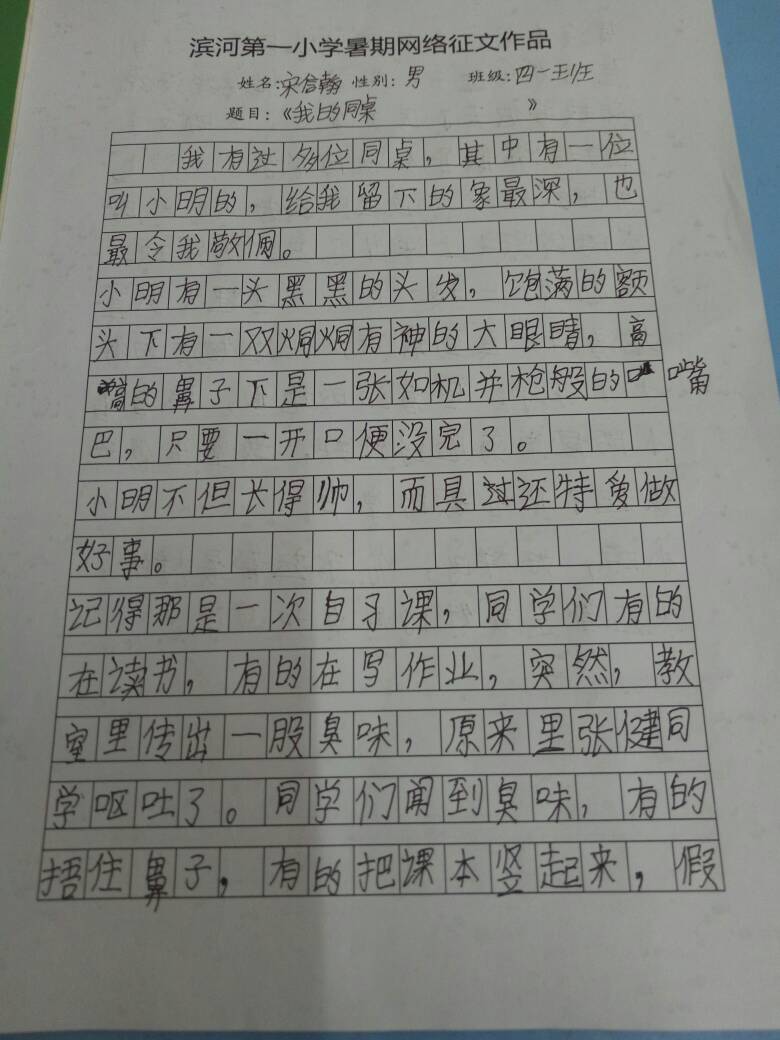 滨河第一小学暑期网络征文作品
姓名:宋信翰 性别:男 班级:四一班
题目:《我的同桌》
我有过多位同桌，其中有一位
叫小明的，给我留下的象最深，也
最令我敬佩。
小明有一头黑黑的头发，饱满的额
头下有一双炯炯有神的大眼睛，高
的鼻子下是一张如机并枪般的嘴
巴，只要一开口便没完了。
小明不但长得帅，而具过还特爱做
好事。
记得那是一次自习课，同学们有的
在读书，有的在写作业，突然，教
室里传出一股臭味，原来里张健同
学呕吐了。同学们闻到臭味，有的
捂住鼻子，有的把课本竖起来，假